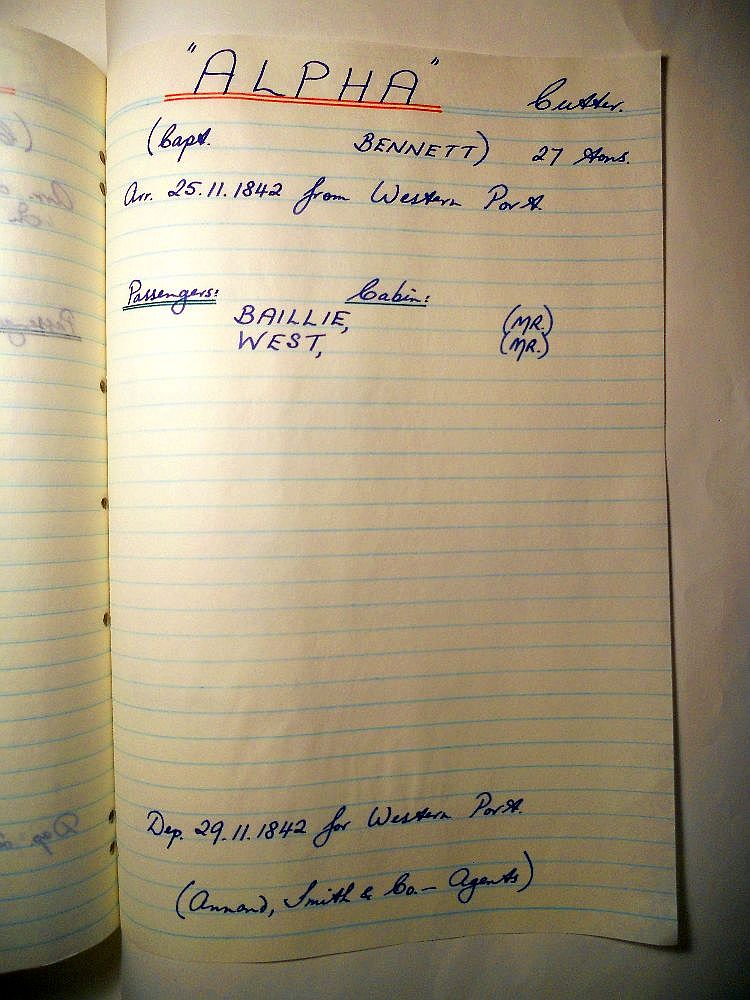 "ALPHA" Cutter.
(Capt. BENNETT) 27 tons.
Arr. 25.11.1842 from Western Port.
Passengers: Cabin:
BAILLIE, (MR.)
WEST, (MR.)
Dep. 29.11.1842 for Western Port.
(Annand, Smith & Co. — Agents)